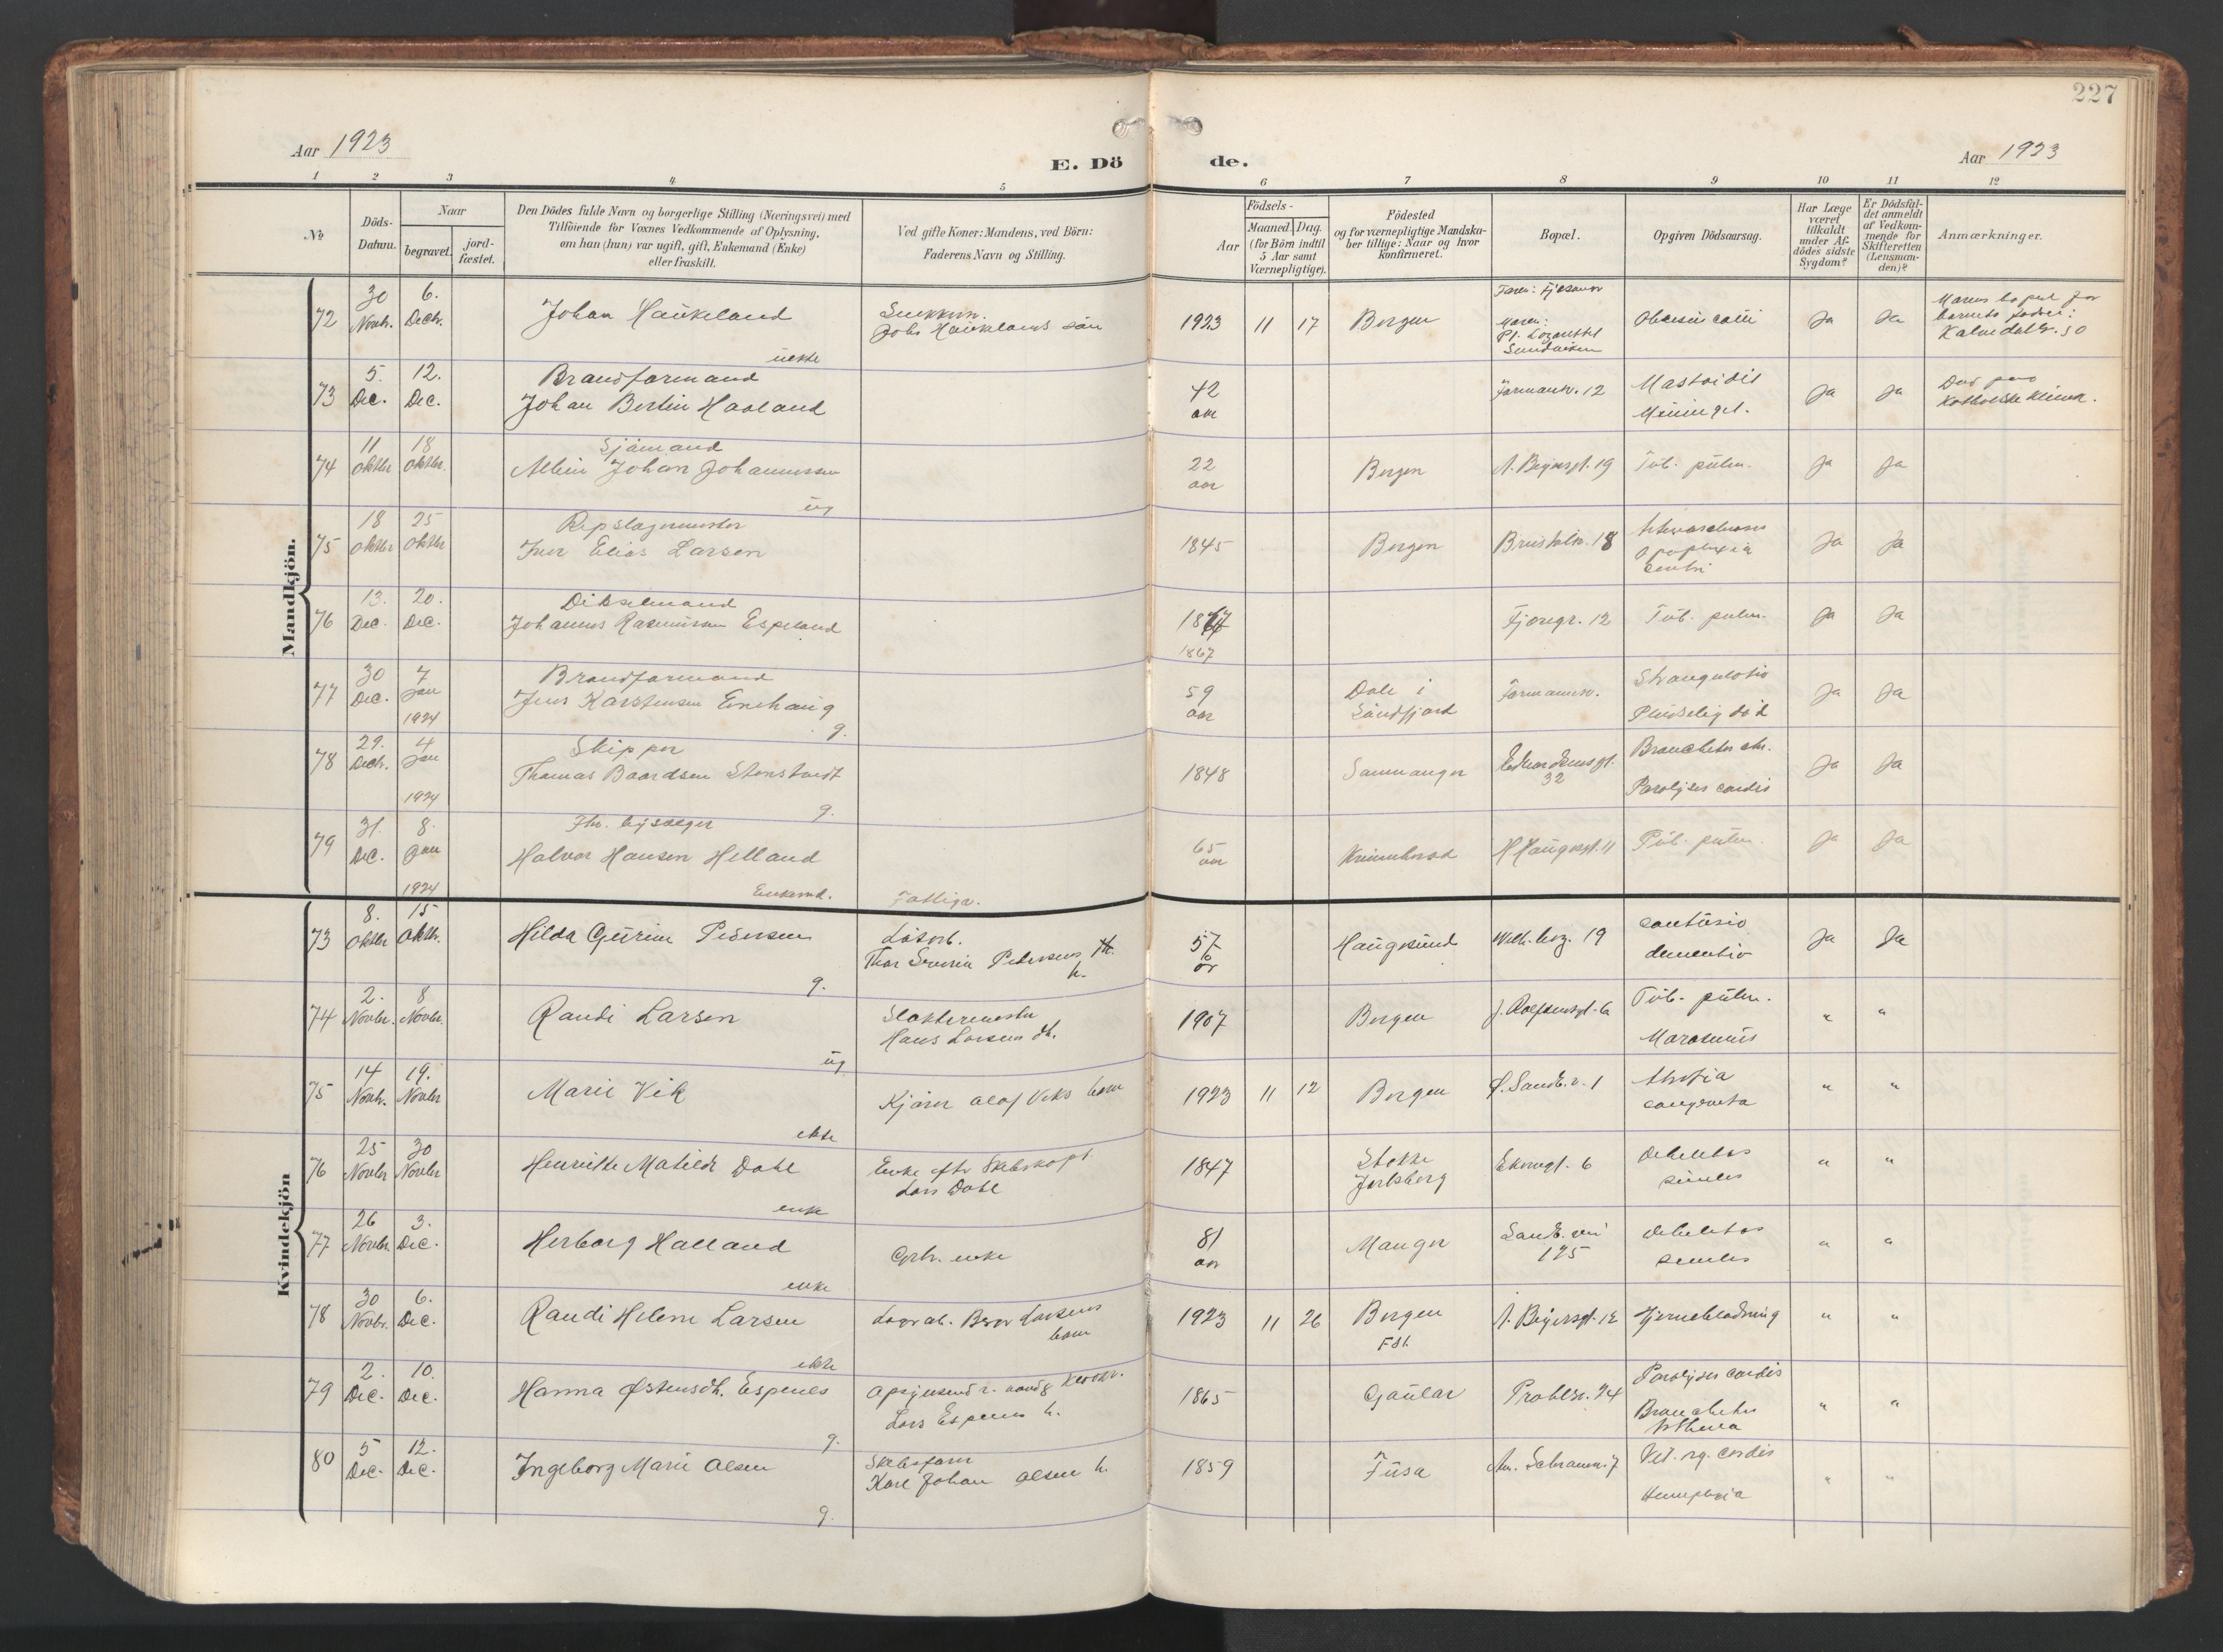 227
Aar 1923
E. Dö de.
Aar 1923
1 2 3 4 5 6 7 8 9 10 11 12
No
Döds-
Datum.
Naar
begravet.
jord-
fæstet.
Den Dödes fulde Navn og borgerlige Stilling (Næringsvei) med
Tilföiende for Voxnes Vedkommende af Oplysning,
om han (hun) var ugift, gift, Enkemand (Enke)
eller fraskilt.
Ved gifte Koner: Mandens, ved Börn:
Faderens Navn og Stilling.
Födsels-
Aar
Maaned. Dag.
(for Börn indtil
5 Aar samt
Værnepligtige).
Födested
og for værnepligtige Mandska-
ber tillige: Naar og hvor
konfirmeret.
Bopæl.
Opgiven Dödsaarsag.
Har Læge
været
tilkaldt
under Af-
dödes sidste
Sygdom?
Er Dödsfal-
det anmeldt
af Vedkom-
mende for
Skifteretten
(Lensman-
den)?
Anmærkninger.
Mandkjön.
72 30 Novbr. 6. Decbr. Johan Haukeland uekte
Johs Hauklands sön
1923 11 17 Bergen
Sandviken
Ja Ja
Kalvedalsv. 30
73 5. Dec. 12. Dec. Brandformand
Johan Bertin Haaland
42 aar Formannsv. 12 Mastoidit
Meningit.
Ja Ja
Död paa
Katholske klinik.
74 11 Oktbr 18 Oktbr. Sjömand
Albin Johan Johannessen
ug
22 aar Bergen A. Beyersgt. 19 Tub. pulm. Ja Ja
75 18 Oktbr 25 Oktbr Repslagermester
Iver Elias Larsen
1845 Bergen 18
Apoplexia
Ja Ja
76 13. Dec. 20. Dec. Dikselmand
Johannes Rasmussen Espeland
1867
1867
Fjøregr. 12 Tub. pulm. Ja Ja
77 30 Dec. 7 Jan 1924 Brandformand
Jens Karstensen Einehaug
g.
59 aar Dale i
Söndfjord
Formannsv. Strangulatio
Pludselig död
Ja Ja
78 29. Decbr. 4 Jan 1924 Skipper
Thomas Baardsen Stenstvedt
g.
1848 Samnanger 32
Bronchitis chr.
Paralysis cordis
Ja Ja
79 31. Dec. 8. Jan 1924 Fhv. bysælger
Halvor Hansen Helland
Enkemd. Fattige.
65 aar Kvinnherad H Haugesgt. 11 Tub. pulm. Ja Ja
Kvindekjön
73 8. Oktbr 15 Oktbr. Hilda Gurine Pedersen
g.
Lösarb.
Thor Severin Pedersens h.
57 år Haugesund 19 contusio
dementia
Ja Ja
74 2. Novbr. 8 Novbr. Randi Larsen
ug
Slaktermester
Hans Larsens dt.
1907 Bergen J. Rolfsensgt. 6a Tub. pulm.
Marasmus
" "
75 14 Novbr. 19. Novbr Marie Vik
ekte
Kjörer Olaf Viks barn
1923 11 12 Bergen Ø. Sandv. v. 1 Atrofia
congenita
" "
76 25 Novbr 30 Novbr Henriette Matilde Dahl
enke
Enke efter Skibskapt.
Lars Dahl
1847 Stokke
Jarlsberg
Ekrengt. 6 Debilitas
senilis
" "
77 26 Novbr. 3. Dec. Herborg Halland
enke
Grbr. enke
81 aar Manger Sandv. vei
125
Debilitas
senilis
" "
78 30 Novbr. 6. Dec. Randi Helene Larsen
ekte
Larsens
barn
1923 11 26 Bergen
Fst.
A. Beyersgt. 12 Hjerneblødning " "
79 2. Dec. 10. Dec. Hanna Østensdt. Espenes
g.
Lars Espenes h.
1865 Gaular Prahlsv. 24 Paralysis cordis
Bronchitis
Asthma
" "
80 5 Dec. 12. Dec. Ingeborg Marie Olsen
g.
Skibsförer
Karl Johan Olsens h.
1859 Fusa Schramm. 7 Vit. org. cordis
Hemiplexia
" "